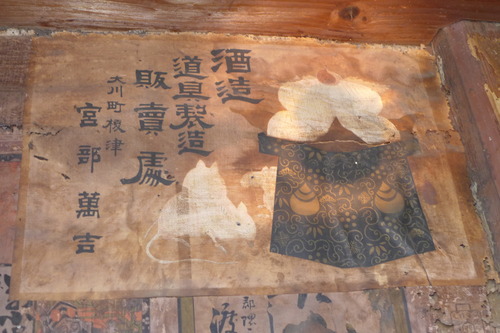 酒造
道具製造
販賣處
大川町榎津
宮部萬吉